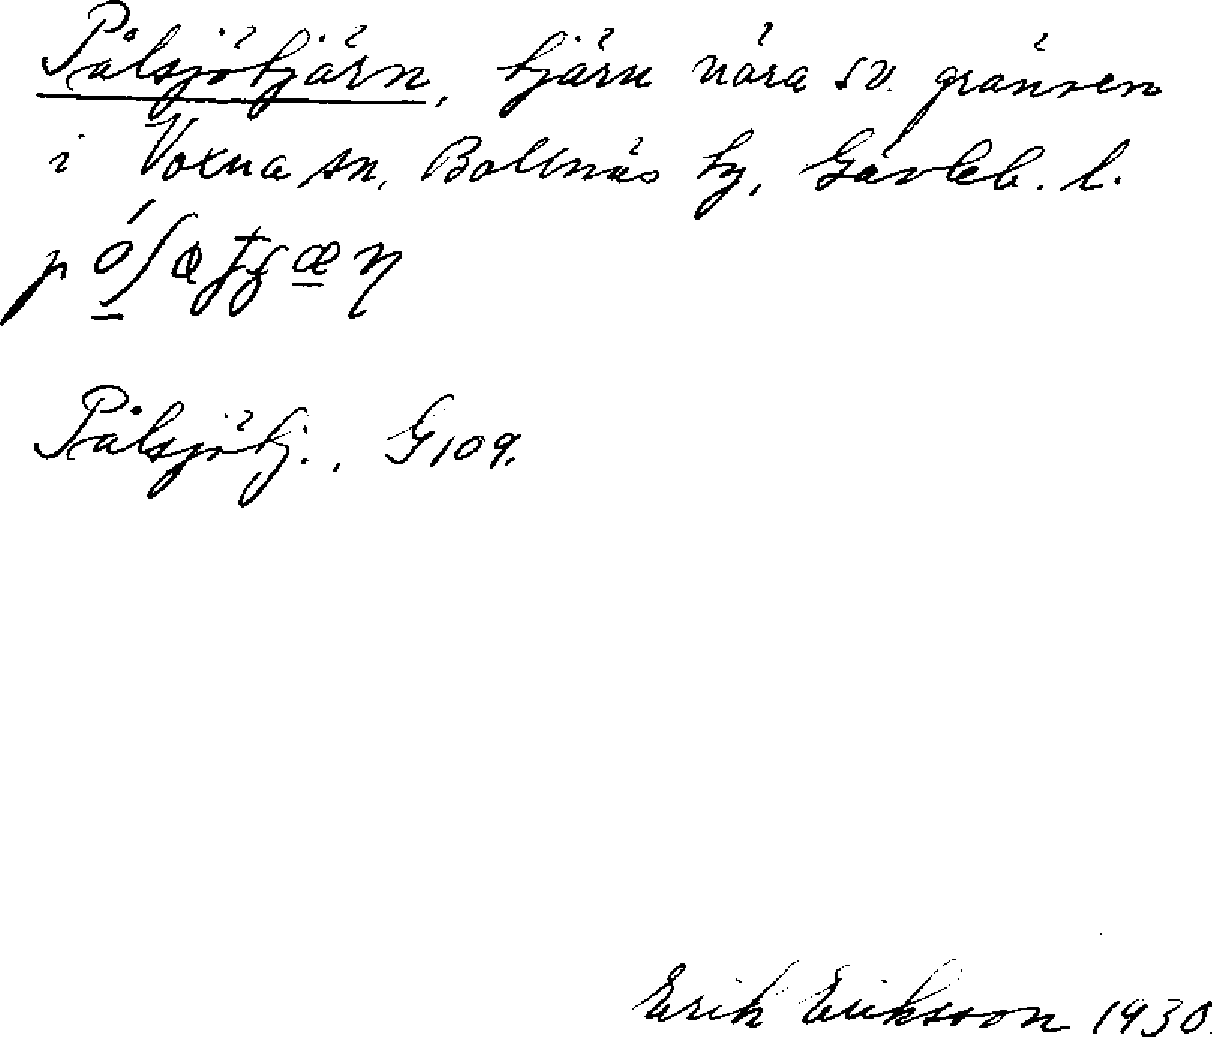 Pålsjötjärn, tjärn nära sv. gränsen
i Voxna sn, Bollnäs tg, Gävleb. l.
Pålsjötj., G109.
Erik Eriksson 1930.